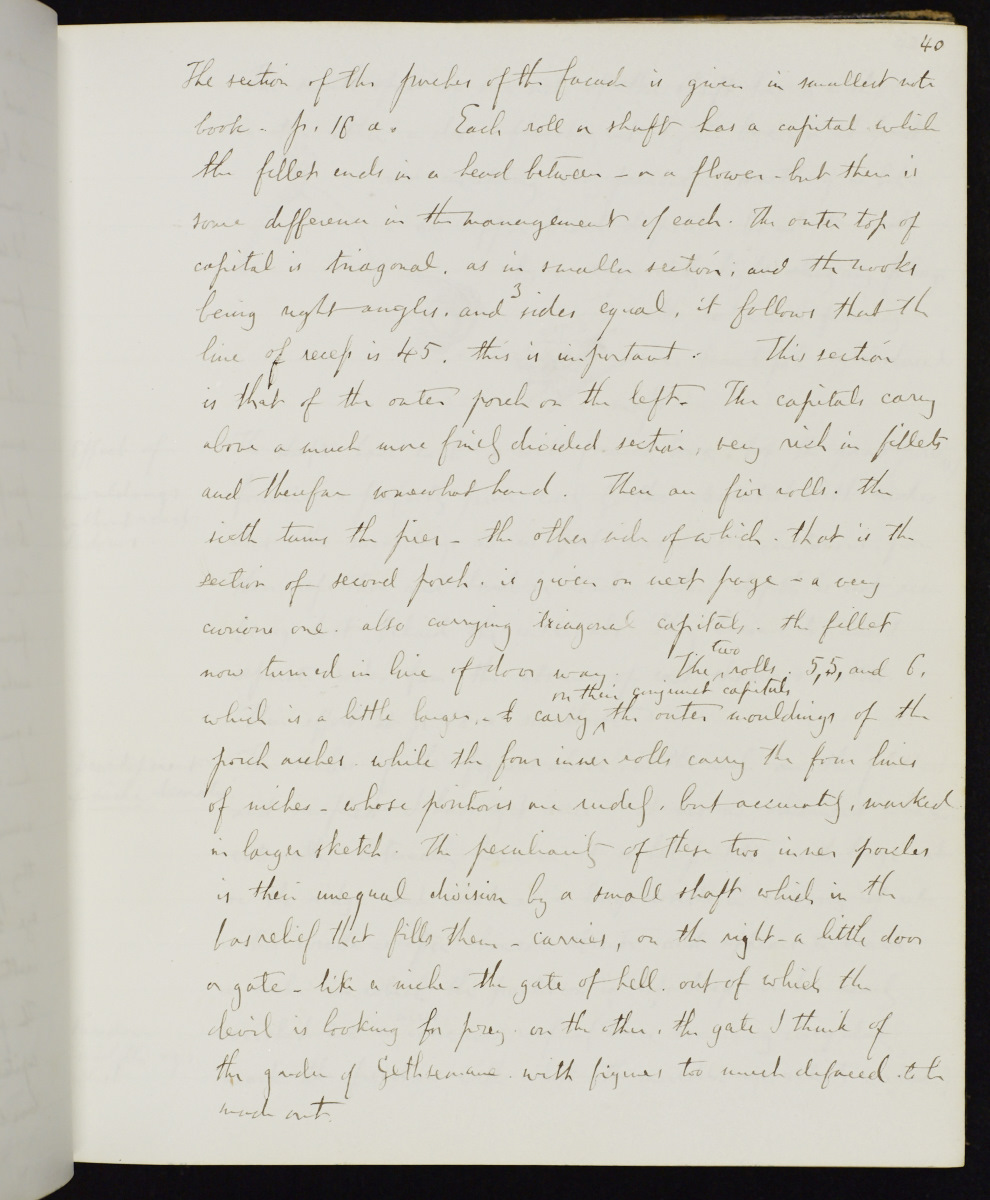 40
The section of the porches of the facade is given in smallest note
book - p. 16 a. Each roll or shaft has a capital which
the fillet ends in a head between - or a flower - but there is
some difference in the management of each. The outer top of
capital is triagonal, as in smaller section; and the nooks
being right angles, and 3 sides equal, it follows that the
line of recess is 45. this is important. This section
is that of the outer porch on the left. The capitals carry
above a much more finely divided section, very rich in fillets
and therefore somewhat hard. There are five rolls. the
sixth turns the pier - the other side of which. that is the
section of second porch. is given on next page - a very
curious one. also carrying triagonal capitals. the fillet
now turned in line of door way. The two rolls. 5, 5, and 6,
which is a little larger, - carry on their conjunct capitals the outer mouldings of the
porch arches. while the four inner rolls carry the four lines
of niches - whose positions are rudely, but accurately, marked
in larger sketch. The peculiarity of these two inner porches
is their unequal division by a small shaft which in the
bas relief that fills them - carries, on the right - a little door
or gate - like a niche - the gate of hell. out of which the
devil is looking for prey. on the other, the gate I think of
the garden of Gethsemane. with figures too much defaced to be
made out.